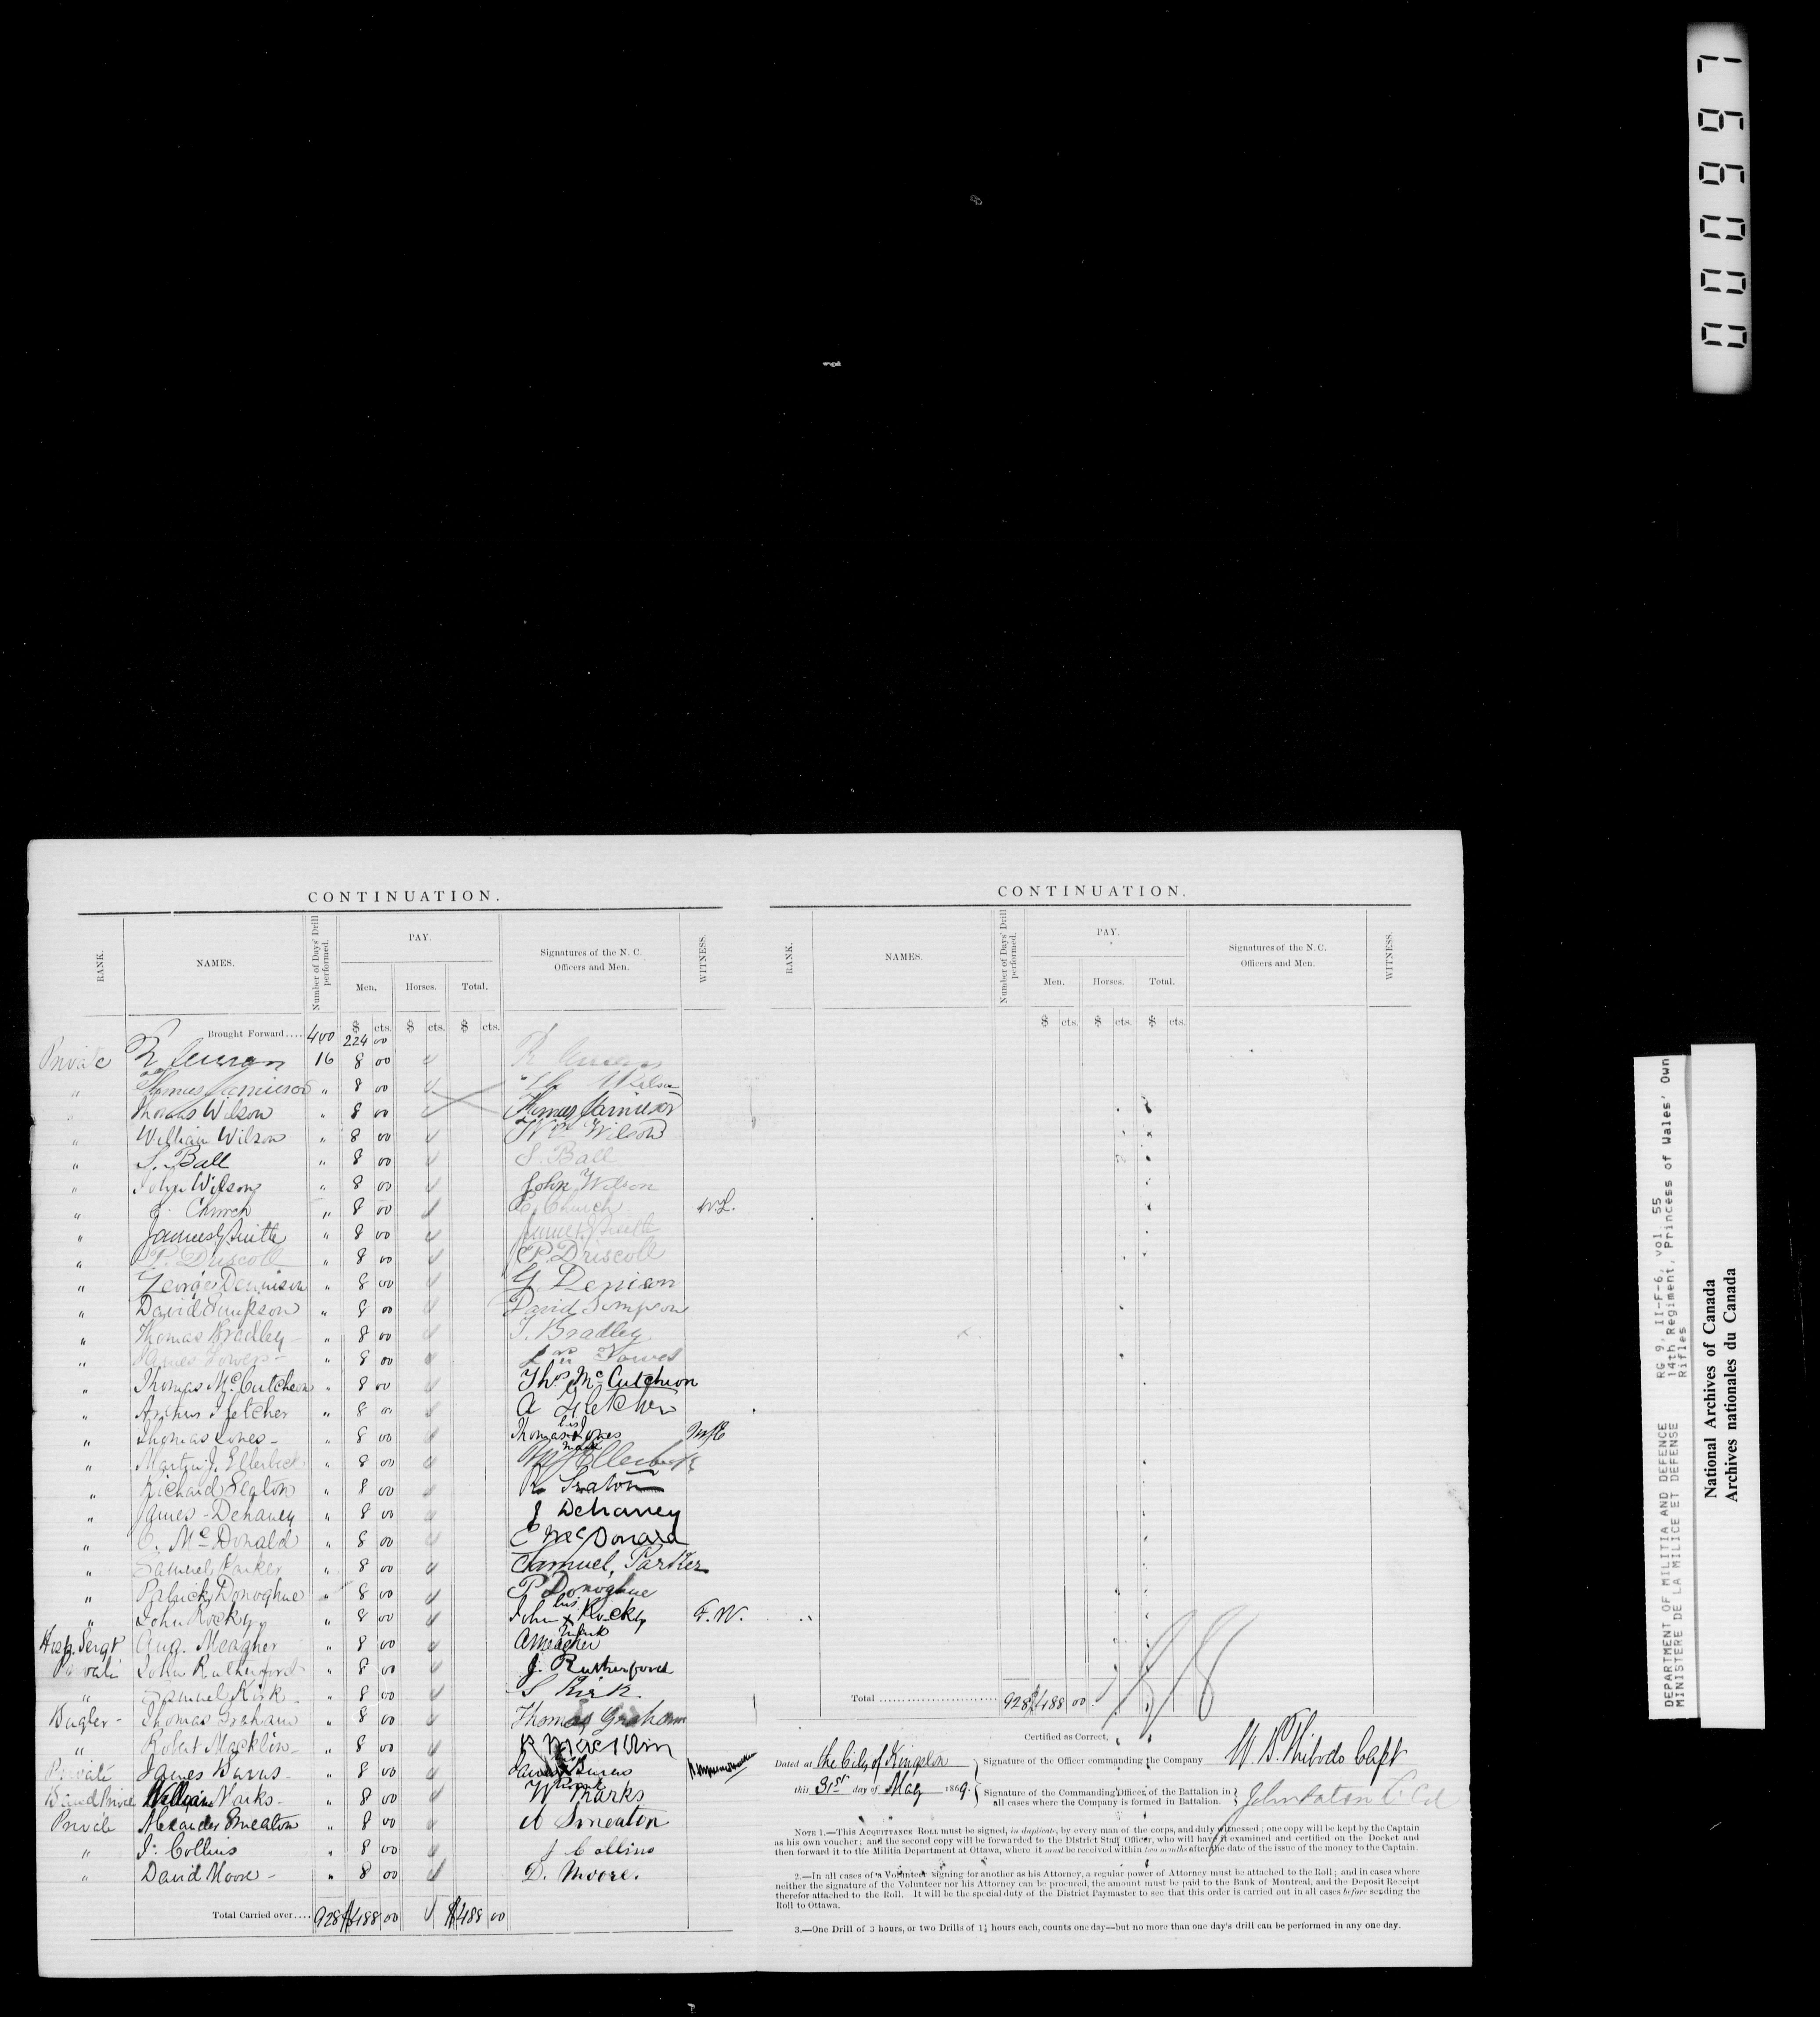 CONTINUATION.
RANK. NAMES. Number of Days' Drill performed. PAY. Signatures of the N. C. Officers and Men. WITNESS.
Men. Horses. Total.
$ cts. $ cts. $ cts.
Brought Forward.... 400 224 00
Private R 16 8 00 R
" Thomas Jamieson " 8 00 Th Wilson
" Thomas Wilson " 8 00 Thomas Jamieson
" William Wilson " 8 00 Wm Wilson
" S. Ball " 8 00 S. Ball
" John Wilson " 8 00 John Wilson
" C. Church " 8 00 C. Church W.L.
" James " 8 00 James
" P. Driscoll " 8 00 P. Driscoll
" George Dennison " 8 00 G Denison
" David Simpson " 8 00 David Simpson
" Thomas Bradley - " 8 00 T. Bradley
" James - " 8 00
" Thomas McCutcheon " 8 00 Thos McCutchion
" Arthur Fletcher " 8 00 A Fletcher
" Thomas Jones - " 8 00 Thomas his x mark Jones
" Martin J. Ellerbeck " 8 00 M J Ellerbeck
" Richard Seaton " 8 00 R Seaton
" James - Dehaney " 8 00 J Dehaney
" C. McDonald " 8 00 C McDonald
" Samuel Parker " 8 00 Samuel, Parker
" Patrick Donoghue " 8 00 P Donoghue
" John Rocky " 8 00 John his x mark Rocky F. W.
Hosp. Sergt Aug. Meagher " 8 00 A Meagher
Private John Rutherford " 8 00 J. Rutherford
" Samuel Kirk - " 8 00 S Kirk.
Bugler - Thomas Graham " 8 00 Thomas Graham
" Robert Macklin - " 8 00 R Macklin
Private James Burns - " 8 00 James Burns
Band Private William Marks - " 8 00 W Marks
Private Alexander Smeaton " 8 00 A Smeaton
" J. Collins " 8 00 J Collins
" David Moore - " 8 00 D. Moore.
Total Carried over.... 928 $488 00 $488 00
CONTINUATION.
RANK. NAMES. Number of Days' Drill performed. PAY. Signatures of the N. C. Officers and Men. WITNESS.
Men. Horses. Total.
$ cts. $ cts. $ cts.
Total 928 $488 00
Certified as Correct,
Dated at the City of Kingston Signature of the Officer commanding the Company W. B. Thibodo Capt
this 31st day of May 1869. Signature of the Commanding Officer of the Battalion in all cases where the Company is formed in Battalion. John Paton Lt Col
NOTE 1.—This ACQUITTANCE ROLL must be signed, in duplicate, by every man of the corps, and duly witnessed; one copy will be kept by the Captain
as his own voucher; and the second copy will be forwarded to the District Staff Officer, who will have it examined and certified on the Docket and
then forward it to the Militia Department at Ottawa, where it must be received within two months after the date of the issue of the money to the Captain.
2.—In all cases of a Volunteer signing for another as his Attorney, a regular power of Attorney must be attached to the Roll; and in cases where
neither the signature of the Volunteer nor his Attorney can be procured, the amount must be paid to the Bank of Montreal, and the Deposit Receipt
therefor attached to the Roll. It will be the special duty of the District Paymaster to see that this order is carried out in all cases before sending the
Roll to Ottawa.
3.—One Drill of 3 hours, or two Drills of 1½ hours each, counts one day—but no more than one day's drill can be performed in any one day.
DEPARTMENT OF MILITIA AND DEFENCE RG 9, II-F-6, vol. 55
MINISTERE DE LA MILICE ET DEFENSE 14th Regiment, Princess of Wales' Own
Rifles
National Archives of Canada
Archives nationales du Canada
000667